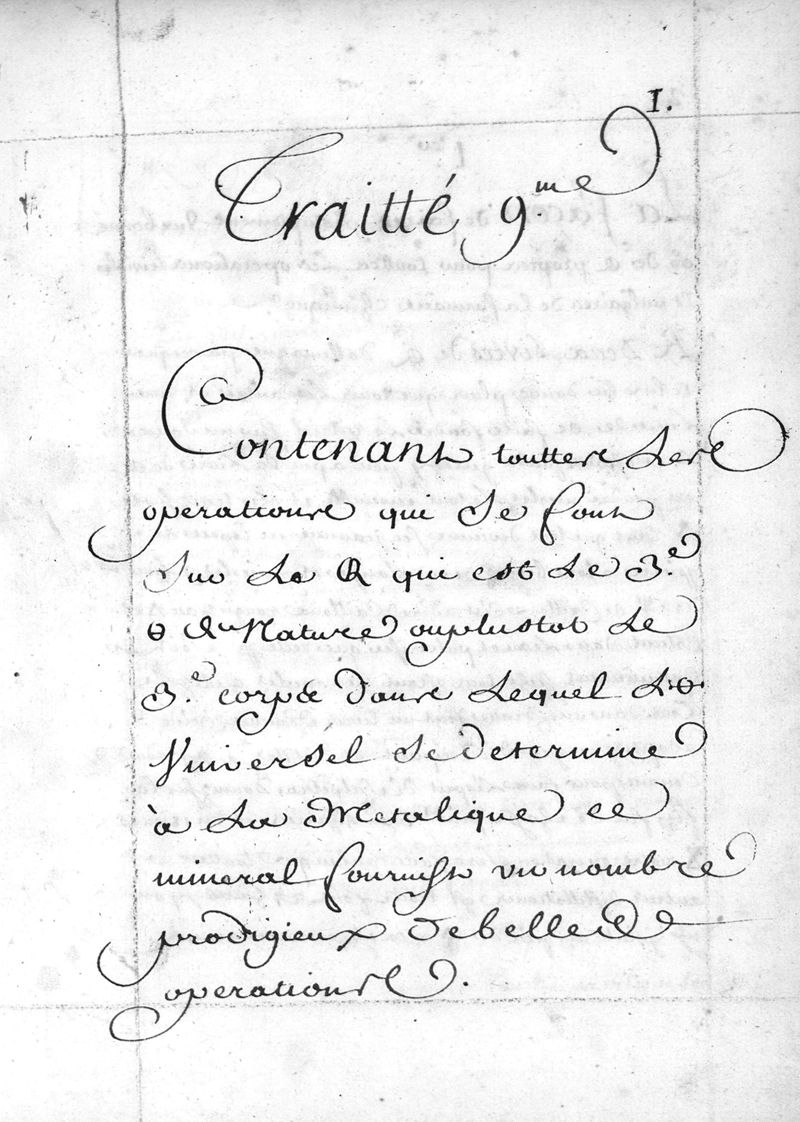 1.
Traitté 9.me
Contenant touttes les
operations qui se font
sur la qui est le 3.e
de Nature ou plustot le
3.e corps dans lequel le
Universel se determine
à la Metalique et
mineral fournist un nombre
prodigieux de belles
operations.